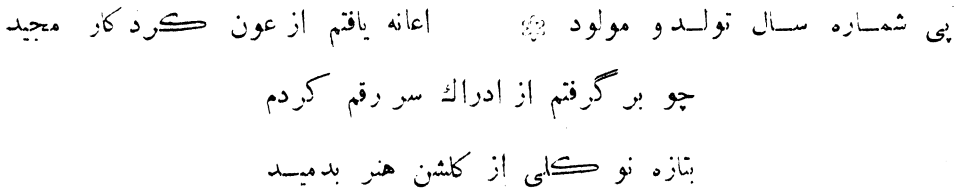 پی شماره سال تولد و مولود ۞ اعانه یافتم از عون کردکار مجید
چو بر گرفتم از ادراك سر رقم کردم
بتازه نو کلی از کلشن هنر بدمید